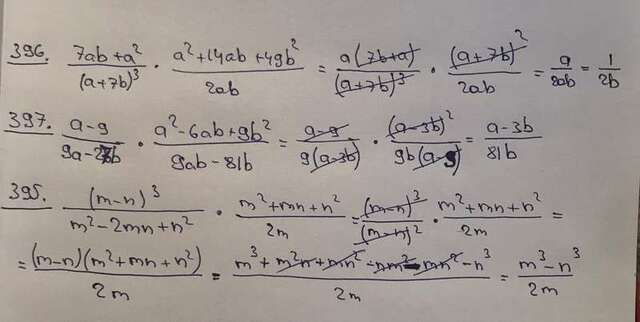 396. (7ab+a²)/(a+7b)³ · (a²+14ab+49b²)/2ab = a(7b+a)/(a+7b)³ · (a+7b)²/2ab = a/2ab = 1/2b
397. (a-9)/(9a-27b) · (a²-6ab+9b²)/(9ab-81b) = (a-9)/9(a-3b) · (a-3b)²/9b(a-9) = (a-3b)/81b
395. (m-n)³/(m²-2mn+n²) · (m²+mn+n²)/2m = (m-n)³/(m-n)² · (m²+mn+n²)/2m =
= (m-n)(m²+mn+n²)/2m = (m³+m²n+mn²-nm²-mn²-n³)/2m = (m³-n³)/2m